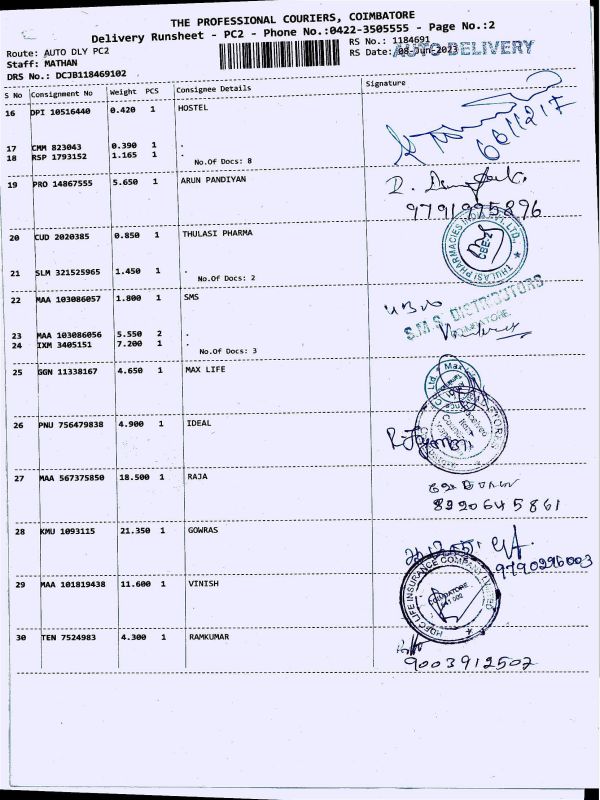 THE PROFESSIONAL COURIERS, COIMBATORE
Delivery Runsheet - PC2 - Phone No.:0422-3505555 - Page No.:2
Route: AUTO DLY PC2
RS No.: 1184691
Staff: MATHAN
RS Date: 08-Jun-2023
AUTO DELIVERY
DRS No.: DCJB118469102
S No Consignment No Weight PCS Consignee Details Signature
16 DPI 10516440 0.420 1 HOSTEL
17 CMM 823043 0.390 1 .
18 RSP 1793152 1.165 1 .
No.Of Docs: 8
19 PRO 14867555 5.650 1 ARUN PANDIYAN
9791995896
20 CUD 2020385 0.850 1 THULASI PHARMA
THULASI PHARMACIES INDIA PVT LTD.,
CBE-2
21 SLM 321525965 1.450 1 .
No.Of Docs: 2
22 MAA 103086057 1.800 1 SMS
S.M.S. DISTRIBUTORS
COIMBATORE.
23 MAA 103086056 5.550 2 .
24 IXM 3405151 7.200 1 .
No.Of Docs: 3
25 GGN 11338167 4.650 1 MAX LIFE
26 PNU 756479838 4.900 1 IDEAL
27 MAA 567375850 18.500 1 RAJA
8220645861
28 KMU 1093115 21.350 1 GOWRAS
9790296003
29 MAA 101819438 11.600 1 VINISH
HDFC LIFE INSURANCE COMPANY LIMITED
COIMBATORE
641 002
30 TEN 7524983 4.300 1 RAMKUMAR
9003912502